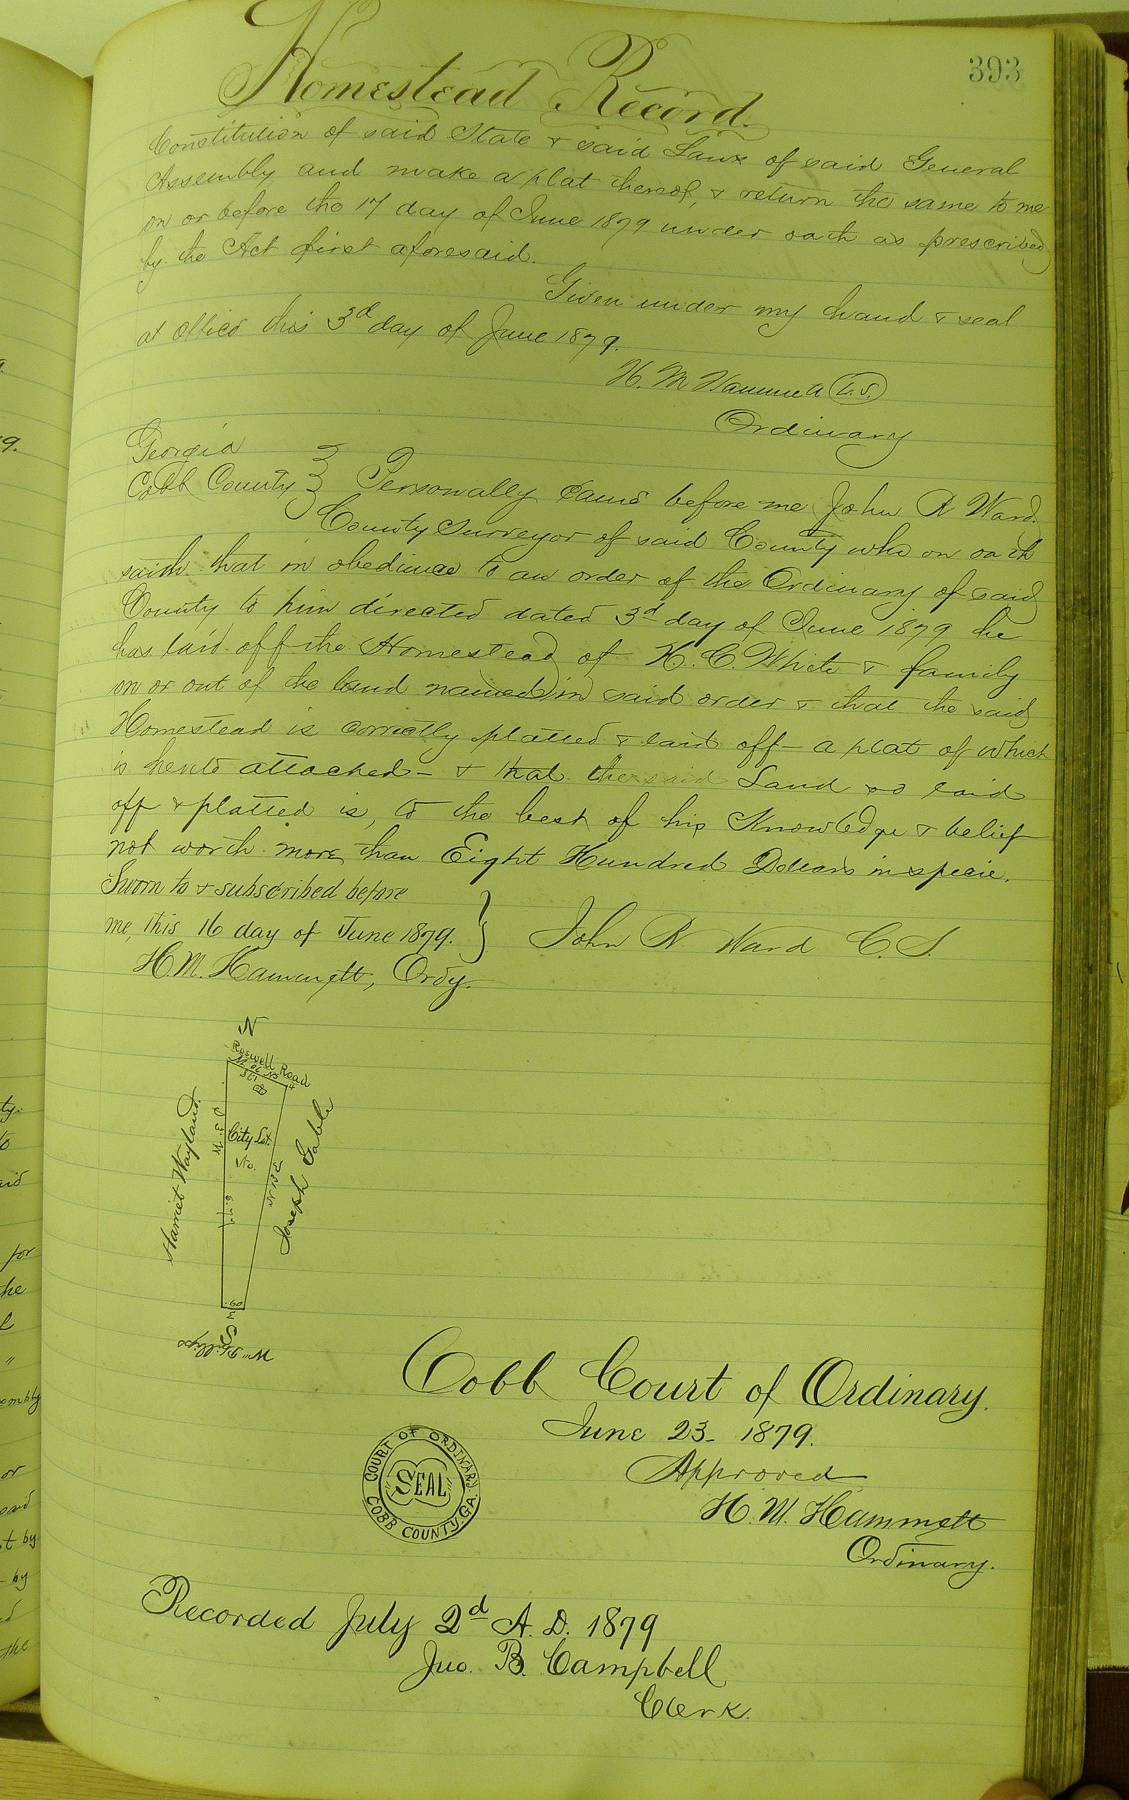 393
Homestead Record.
Constitution of said State & said Laws of said General
Assembly and make a plat thereof, & return the same to me
on or before the 17 day of June 1879 under oath as prescribed
by the Act first aforesaid.
Given under my hand & seal
at office this 3d day of June 1879.
H. M. Hammett L.S.
Ordinary
Georgia
Cobb County } Personally came before me John R Ward
County Surveyor of said County who on oath
saith that in obedience to an order of the Ordinary of said
County to him directed dated 3d day of June 1879 he
has laid off the Homestead of H. C. White & family
on or out of the land named in said order & that the said
Homestead is correctly platted & laid off - a plat of which
is hereto attached - & that the said Land so laid
off & platted is, to the best of his Knowledge & belief
not worth more than Eight Hundred Dollars in specie.
Sworn to & subscribed before
me, this 16 day of June 1879. } John R Ward C.S.
H. M. Hammett, Ordy.
N
Roswell Road
City Lot
No.
Harriet Wayland.
Joseph Gable
S
Cobb Court of Ordinary.
June 23- 1879.
Approved
H. M. Hammett
Ordinary.
COURT OF ORDINARY
SEAL
COBB COUNTY, GA.
Recorded July 2d A. D. 1879
Jno. B. Campbell
Clerk.